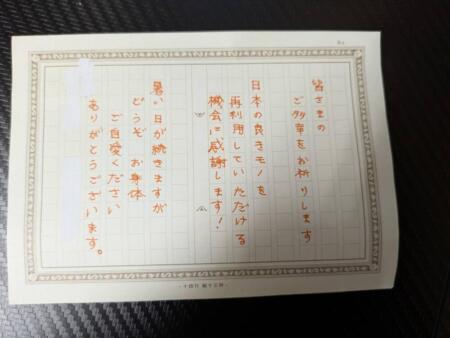 皆さまの
ご多幸をお祈りします
日本の良きモノを
再利用していただける
機会に感謝します！
暑い日が続きますが
どうぞお身体
ご自愛ください
ありがとうございます。